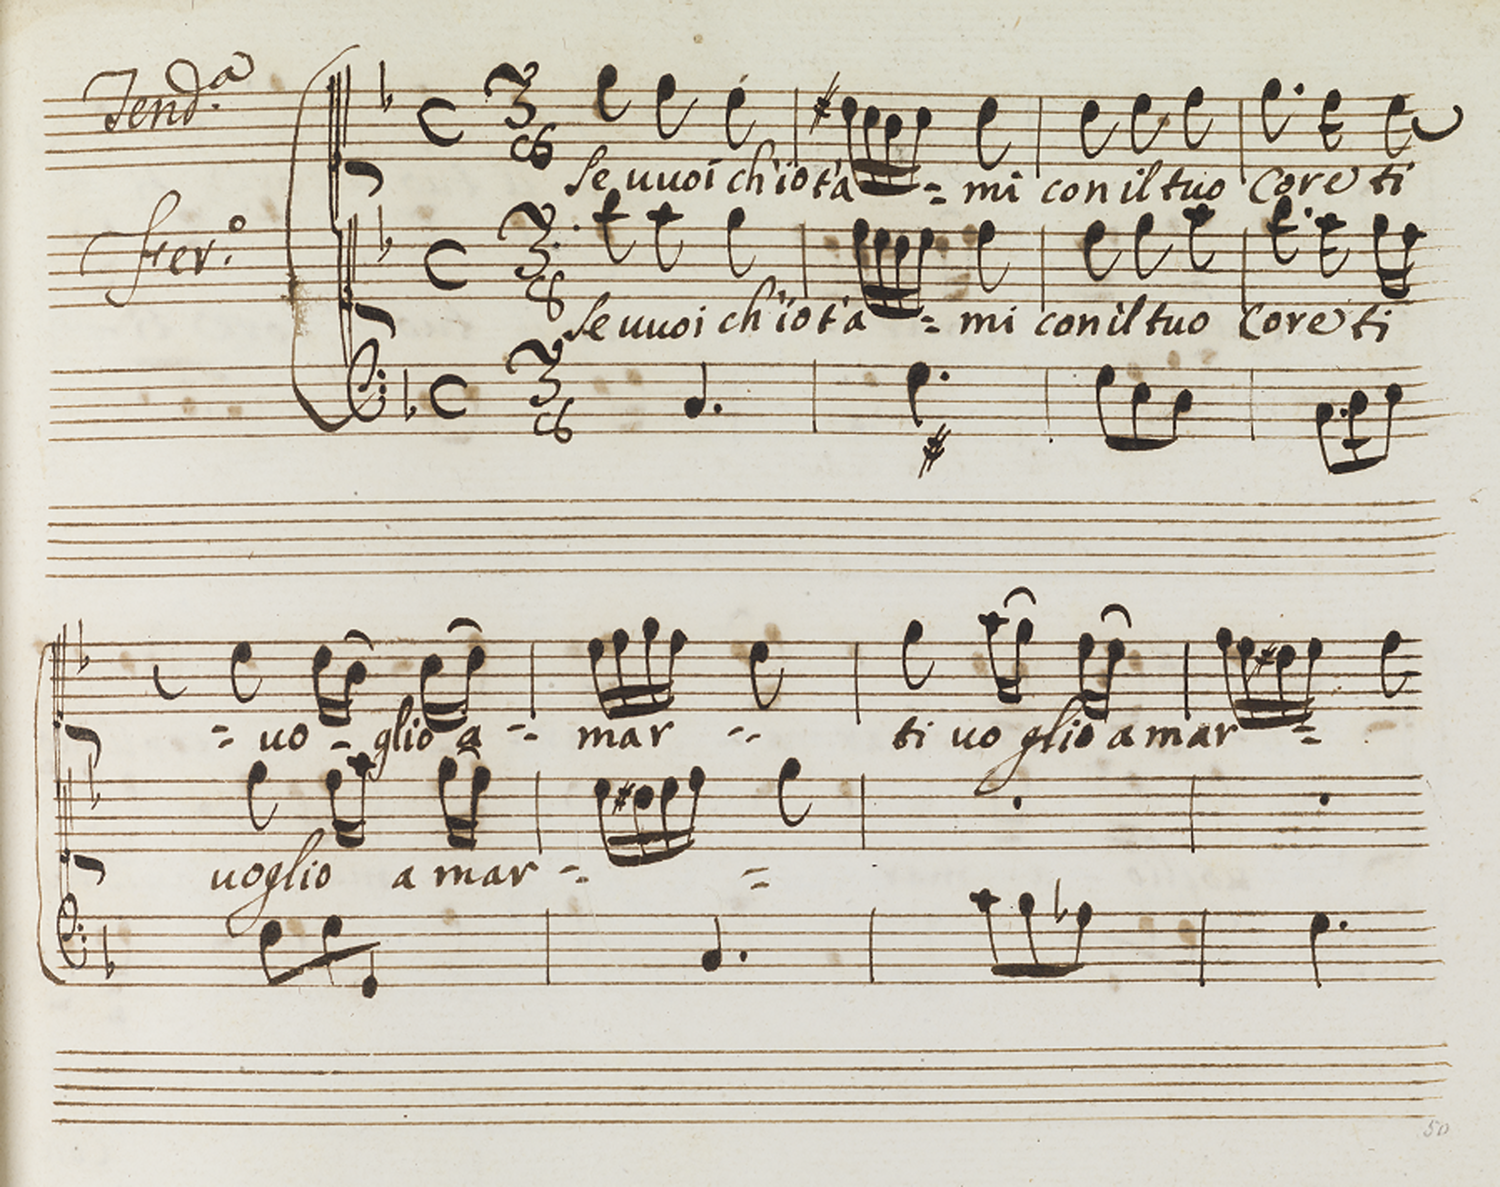 Tend.a
Se vuoi ch'io t'a = mi con il tuo Core ti
Fer.o
Se vuoi ch'io t'a = mi con il tuo Core ti
= vo - glio a - mar - ti vo glio a mar =
voglio a mar - =
50